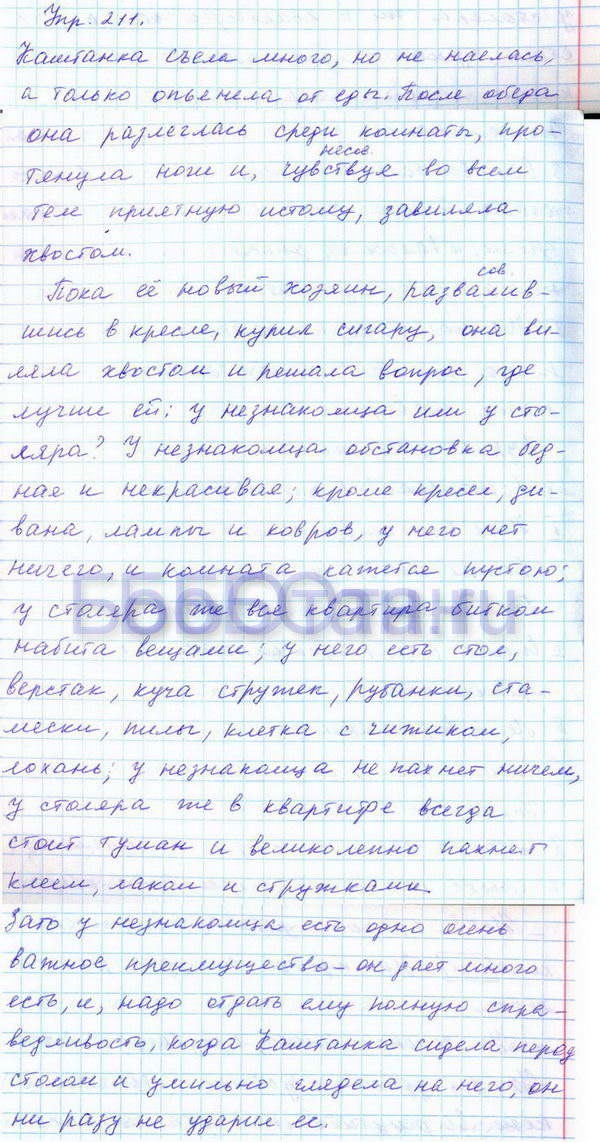 Упр. 211.
Каштанка съела много, но не наелась,
а только опьенела от еды. После обеда
она разлеглась среди комнаты, про-
несов.
тянула ноги и, чувствуя во всем
теле приятную истому, завиляла
хвостом.
сов.
Пока её новый хозяин, развалив-
шись в кресле, курил сигару, она ви-
ляла хвостом и решала вопрос, где
лучше ей: у незнакомца или у сто-
ляра? У незнакомца обстановка бед-
ная и некрасивая; кроме кресел, ди-
вана, лампы и ковров, у него нет
ничего, и комната кажется пустою;
у столяра же вся квартира битком
набита вещами; у него есть стол,
верстак, куча стружек, рубанки, ста-
мески, пилы, клетка с чижиком,
лохань; у незнакомца не пахнет ничем,
у столяра же в квартире всегда
стоит туман и великолепно пахнет
клеем, лаком и стружками.
Зато у незнакомца есть одно очень
важное преимущество – он дает много
есть, и, надо отдать ему полную спра-
ведливость, когда Каштанка сидела перед
столом и умильно глядела на него, он
ни разу не ударил ее.